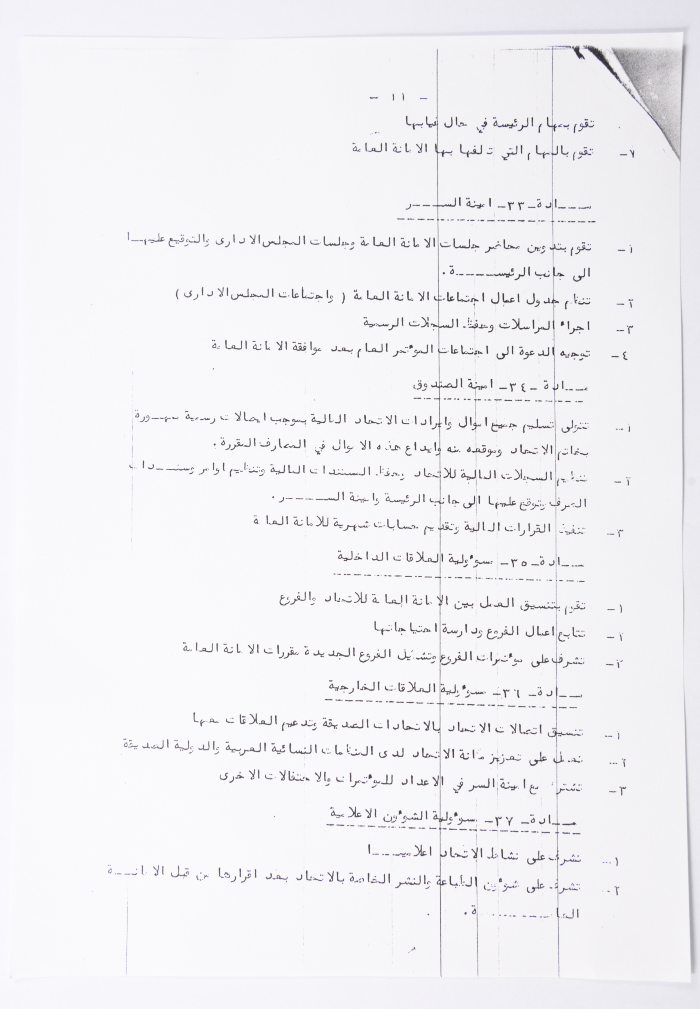 - ١١ -
تقوم بمهام الرئيسة في حال غيابها
٧- تقوم بالمهام التي تكلفها بها الامانة العامة
مـــادة -٣٣- امينة الســـر
١- تقوم بتدوين محاضر جلسات الامانة العامة وجلسات المجلس الادارى والتوقيع عليهـــا
الى جانب الرئيســــة .
٢- تنظيم جدول اعمال اجتماعات الامانة العامة ( واجتماعات المجلس الادارى )
٣- اجراء المراسلات وحفظ السجلات الرسمية
٤- توجيه الدعوة الى اجتماعات المؤتمر العام بعد موافقة الامانة العامة
مـــادة -٣٤- امينة الصندوق
١- تتولى تسليم جميع اموال وايرادات الاتحاد المالية بموجب ايصالات رسمية مهـــورة
بخاتم الاتحاد وموقعه منه وايداع هذه الاموال في المصارف المقررة .
٢- تنظيم السجلات المالية للاتحاد وحفظ المستندات المالية وتنظيم اوامر وسنـــدات
الصرف وتوقع عليها الى جانب الرئيسة وامينة الســـر .
٣- تنفيذ القرارات المالية وتقديم حسابات شهرية للامانة العامة
مـــادة -٣٥- مسؤولية العلاقات الداخلية
١- تقوم بتنسيق العمل بين الامانة العامة للاتحاد والفروع
٢- تتابع اعمال الفروع ودارسة احتياجاتها
٣- تشرف على مؤتمرات الفروع وتشكيل الفروع الجديدة مقررات الامانة العامة
مـــادة -٣٦- مسؤولية العلاقات الخارجية
١- تنسيق اتصالات الاتحاد بالاتحادات الصديقة وتدعيم العلاقات معها
٢- تعمل على تعزيز مكانة الاتحاد لدى المنظمات النسائية العربية والدولية الصديقة
٣- تشترك مع امينة السر في الاعداد للمؤتمرات والاحتفالات الاخرى
مـــادة -٣٧- مسؤولية الشؤون الاعلامية
١- تشرف على نشاط الاتحاد اعلاميـــا
٢- تشرف على شؤون الطباعة والنشر الخاصة بالاتحاد بعد اقرارها من قبل الامانـــة
العامــــــة .